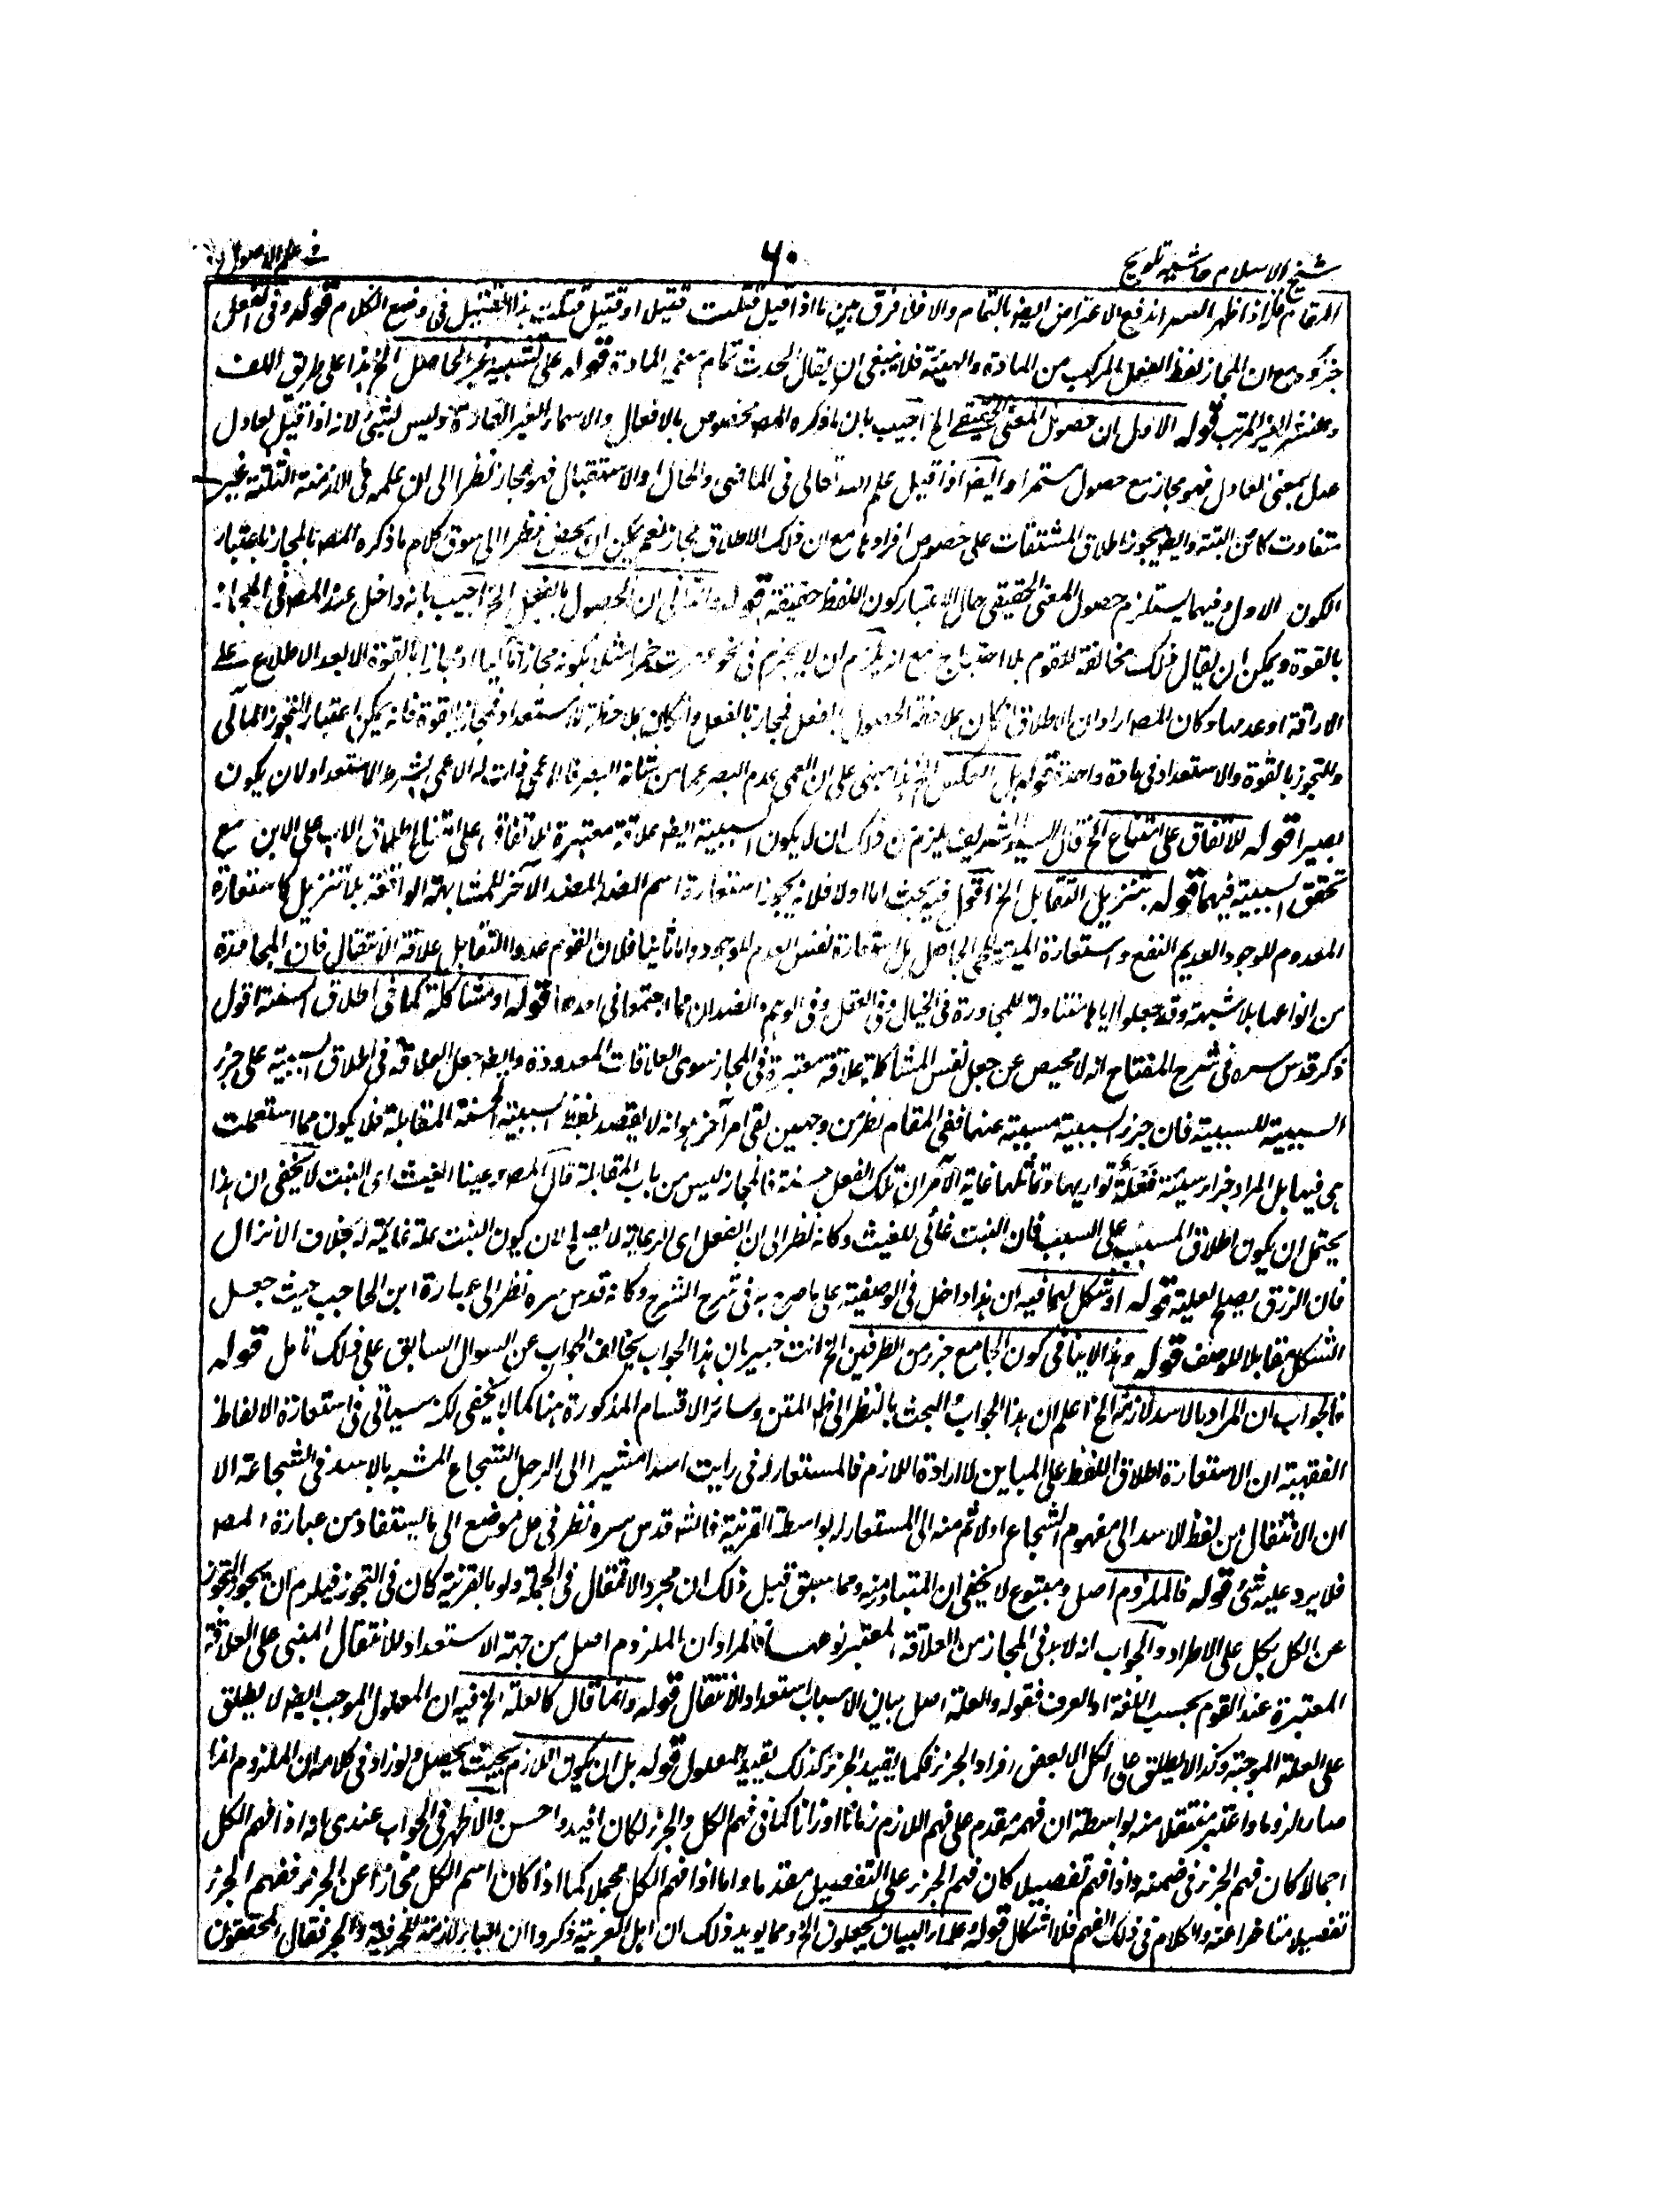 شيخ الاسلام حاشيه تلويح
٦٠
فى علم الاصول
المقام فاذا ظهر اندفع الاعتراض ايضا بالتمام والا فلا فرق بين ما اذا قيل قتلت قتيلا او قتيل قتلت هذا القتيل فى وضع الكلام قوله وفى الفعل
جزؤه مع ان المجاز لفظ الفعل المركب من المادة والهيئة فلا ينبغى ان يقال الحدث تمام معنى المادة قوله على تشبيه غير الحاصل الخ هذا على طريق اللف
والنشر الغير المرتب قوله الاول ان حصول المعنى الحقيقى الخ اجيب بان ما ذكره المصـ مخصوص بالافعال والاسماء الغير القارة وليس بشئ لانه اذا قيل لعادل
عدل بمعنى العادل فهو مجاز مع حصول مستمرا وايضا اذا قيل علم الله تعالى فى الماضى والحال والاستقبال فهو مجاز نظرا الى ان علمه فى الازمنة الثلثة غير
متفاوت كائن البتة وايضا يجوز اطلاق المشتقات على خصوص افرادها مع ان ذلك الاطلاق مجاز نعم يمكن ان نظرا الى سوق كلام ما ذكره المصـ بالمجاز باعتبار
الكون الاول وفيما يستلزم حصول المعنى الحقيقى حال الاعتبار كون اللفظ حقيقة قوله والثانى ان الحصول بالفعل الخ اجيب بانه داخل عند المصـ فى المجاز
بالقوة ويمكن ان يقال ذلك مخالفة للقوم بلا احتياج مع انه يلزم ان لا يجزم فى نحو عصرت خمرا مثلا بكونه مجازا او مجازا بالقوة الا بعد الاطلاع على
الاراقة او عدمها وكان المصـ اراد ان الاطلاق ان كان بملاحظة الحصول بالفعل فمجاز بالفعل وان كان بملاحظة الاستعداد فمجاز بالقوة فانه يمكن اعتبار التجوز المآلى
وللتجوز بالقوة والاستعداد فى مادة واحدة قوله بل الخ هذا مبنى على ان العمى عدم البصر عما من شانه البصر فالاعمى ذات له العمى بشرط الاستعداد لان يكون
بصيرا قوله للاتفاق على امتناع الخ قال السيد الشريف يلزم من ذلك ان لا يكون السببية ايضا علاقة معتبرة للاتفاق على امتناع اطلاق الاب على الابن مع
تحقق السببية فيهما قوله بتنزيل التقابل الخ اقول فيه بحث اما اولا فلانه يجوز استعارة اسم الضد للضد الآخر للمشابهة الواقعة بلا تنزيل كاستعارة
المعدوم للوجود العديم النفع واستعارة الميت بل استعارة نفس العدم للوجود واما ثانيا فلان القوم عدوا التقابل علاقة الانتقال فان المجاورة
من انواعها بلا شبهة وقد جعلوا اياها متناولة للمجاورة فى الخيال وفى العقل وفى الوهم والضدان مما اجتمعا فى احدها قوله او مشاكلة كما فى اطلاق السيئة اقول
ذكر قدس سره فى شرح المفتاح انه لا محيص عن جعل نفس المشاكلة علاقة معتبرة فى المجاز سوى العلاقات المعدودة وايضا جعل العلاقة فى اطلاق السيئة على جزاء
السيئة السببية فان جزاء السيئة مسببة عنها ففى المقام نظر من وجهين بقى امر آخر هو انه لا يقصد بلفظ السيئة الحسنة المقابلة فلا يكون مما استعملت
هى فيها بل المراد جزاء سيئة فعلة تماثلها غاية الامر ان تلك الفعل حسنة فالمجاز ليس من باب المقابلة قال المصـ رعينا الغيث اى النبت لا يخفى ان هذا
يحتمل ان يكون اطلاق المسبب على السبب فان النبت غائى للغيث وكانه نظر الى ان الفعل اى الرعاية لا يصلح لان يكون النبت علة غائية له بخلاف الانزال
فان الرزق يصلح لعليته قوله او شكل لها فيه ان هذا داخل فى الوصفية على ما صرح به فى شرح الشرح وكانه قدس سره نظر الى عبارة ابن الحاجب حيث جعل
الشكل مقابلا للوصف قوله وهذا لا ينافى كون الجامع جزء من الطرفين الخ انت خبير بان هذا الجواب يخالف الجواب عن السوال السابق على ذلك تامل قوله
فالجواب ان المراد بالاسد لازمة الخ اعلم ان هذا الجواب والبحث بالنظر الى المتن وسائر الاقسام المذكورة هنا كما لا يخفى لكنه سياتى فى استعارة الالفاظ
الفقهية ان الاستعارة اطلاق اللفظ على المباين لا ارادة اللازم فالمستعار له فى رايت اسدا مشيرا الى الرجل الشجاع المشبه بالاسد فى الشجاعة الا
ان الانتقال من لفظ الاسد الى مفهوم الشجاع اولا ثم منه الى المستعار له بواسطة القرينة فالشـ قدس سره نظر فى كل موضع الى ما يستفاد من عبارة المصـ
فلا يرد عليه شئ قوله فالملزوم اصل ومتبوع لا يخفى ان المتبادر منه ومما سبق قبل ذلك ان مجرد الانتقال فى الجملة ولو بالقرينة كان فى التجوز فيلزم ان يجوز التجوز
عن الكل بكل على الاطراد والجواب انه لا بد فى المجاز من العلاقة المعتبر نوعها فالمراد ان الملزوم اصل من جهة الاستعداد للانتقال المبنى على العلاقة
المعتبرة عند القوم بحسب اللغة او العرف فقوله والعلة اصل بيان لاسباب استعداد الانتقال قوله وانما قال كالعلة الخ فيه ان المعلول الموجب ايضا لا يطلق
على العلة الموجبة وكذا لا يطلق على الكل الا بعض افراد الجزء فكما يقيد الجزء كذلك يقيد المعلول قوله بل ان يكون اللازم بحيث يحصل ولو زاد فى كلامه ان الملزوم اذا
صار لازما واعتبر منتقلا منه بواسطة ان فهمه مقدم على فهم اللازم زمانا او ذاتا كما فى فهم الكل والجزء لكان افيد واحسن والاظهر فى الجواب عندى انه اذا فهم الكل
اجمالا كان فهم الجزء فى ضمنه واذا فهم تفصيلا كان فهم الجزء على التفصيل مقدما واما اذا فهم الكل مجملا كما اذا كان اسم الكل مجازا عن الجزء ففهم الجزء
تفصيلا متاخر عنه والكلام فى ذلك الفهم فلا اشكال قوله علماء البيان يجعلون الخ ومما يويد ذلك ان اهل العربية ذكروا ان الباء لازمة للحرفية والجر فقال المحققون